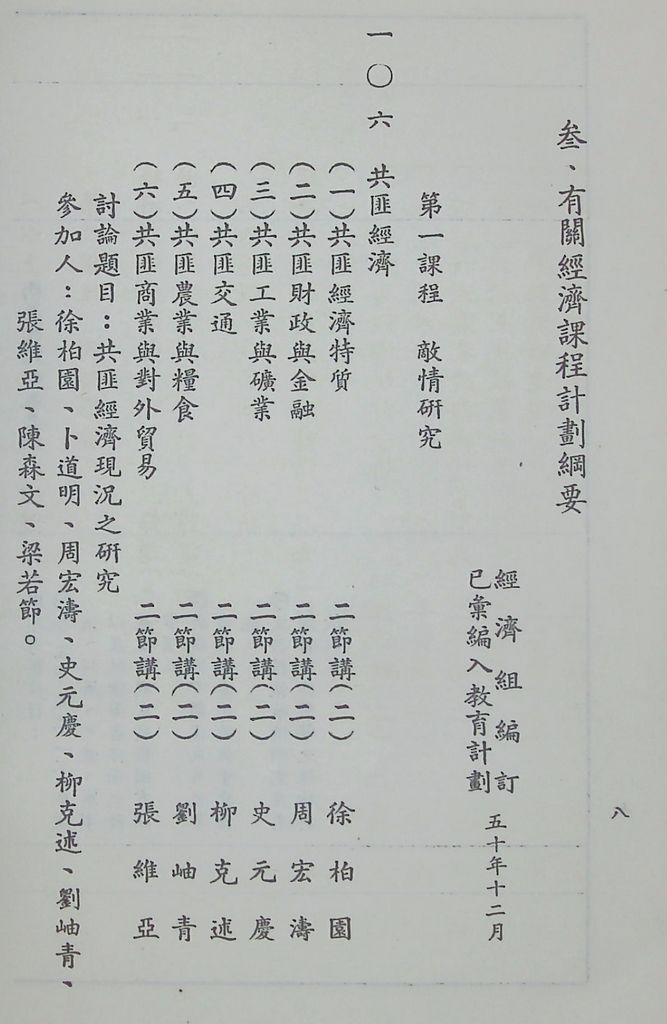 八
叁、有關經濟課程計劃綱要
經濟組編訂
已彙編入教育計劃
五十年十二月
第一課程　敵情研究
一〇六　共匪經濟
（一）共匪經濟特質　二節講（二）　徐柏園
（二）共匪財政與金融　二節講（二）　周宏濤
（三）共匪工業與礦業　二節講（二）　史元慶
（四）共匪交通　二節講（二）　柳克述
（五）共匪農業與糧食　二節講（二）　劉岫青
（六）共匪商業與對外貿易　二節講（二）　張維亞
討論題目：共匪經濟現況之研究
參加人：徐柏園、卜道明、周宏濤、史元慶、柳克述、劉岫青、
張維亞、陳森文、梁若節。